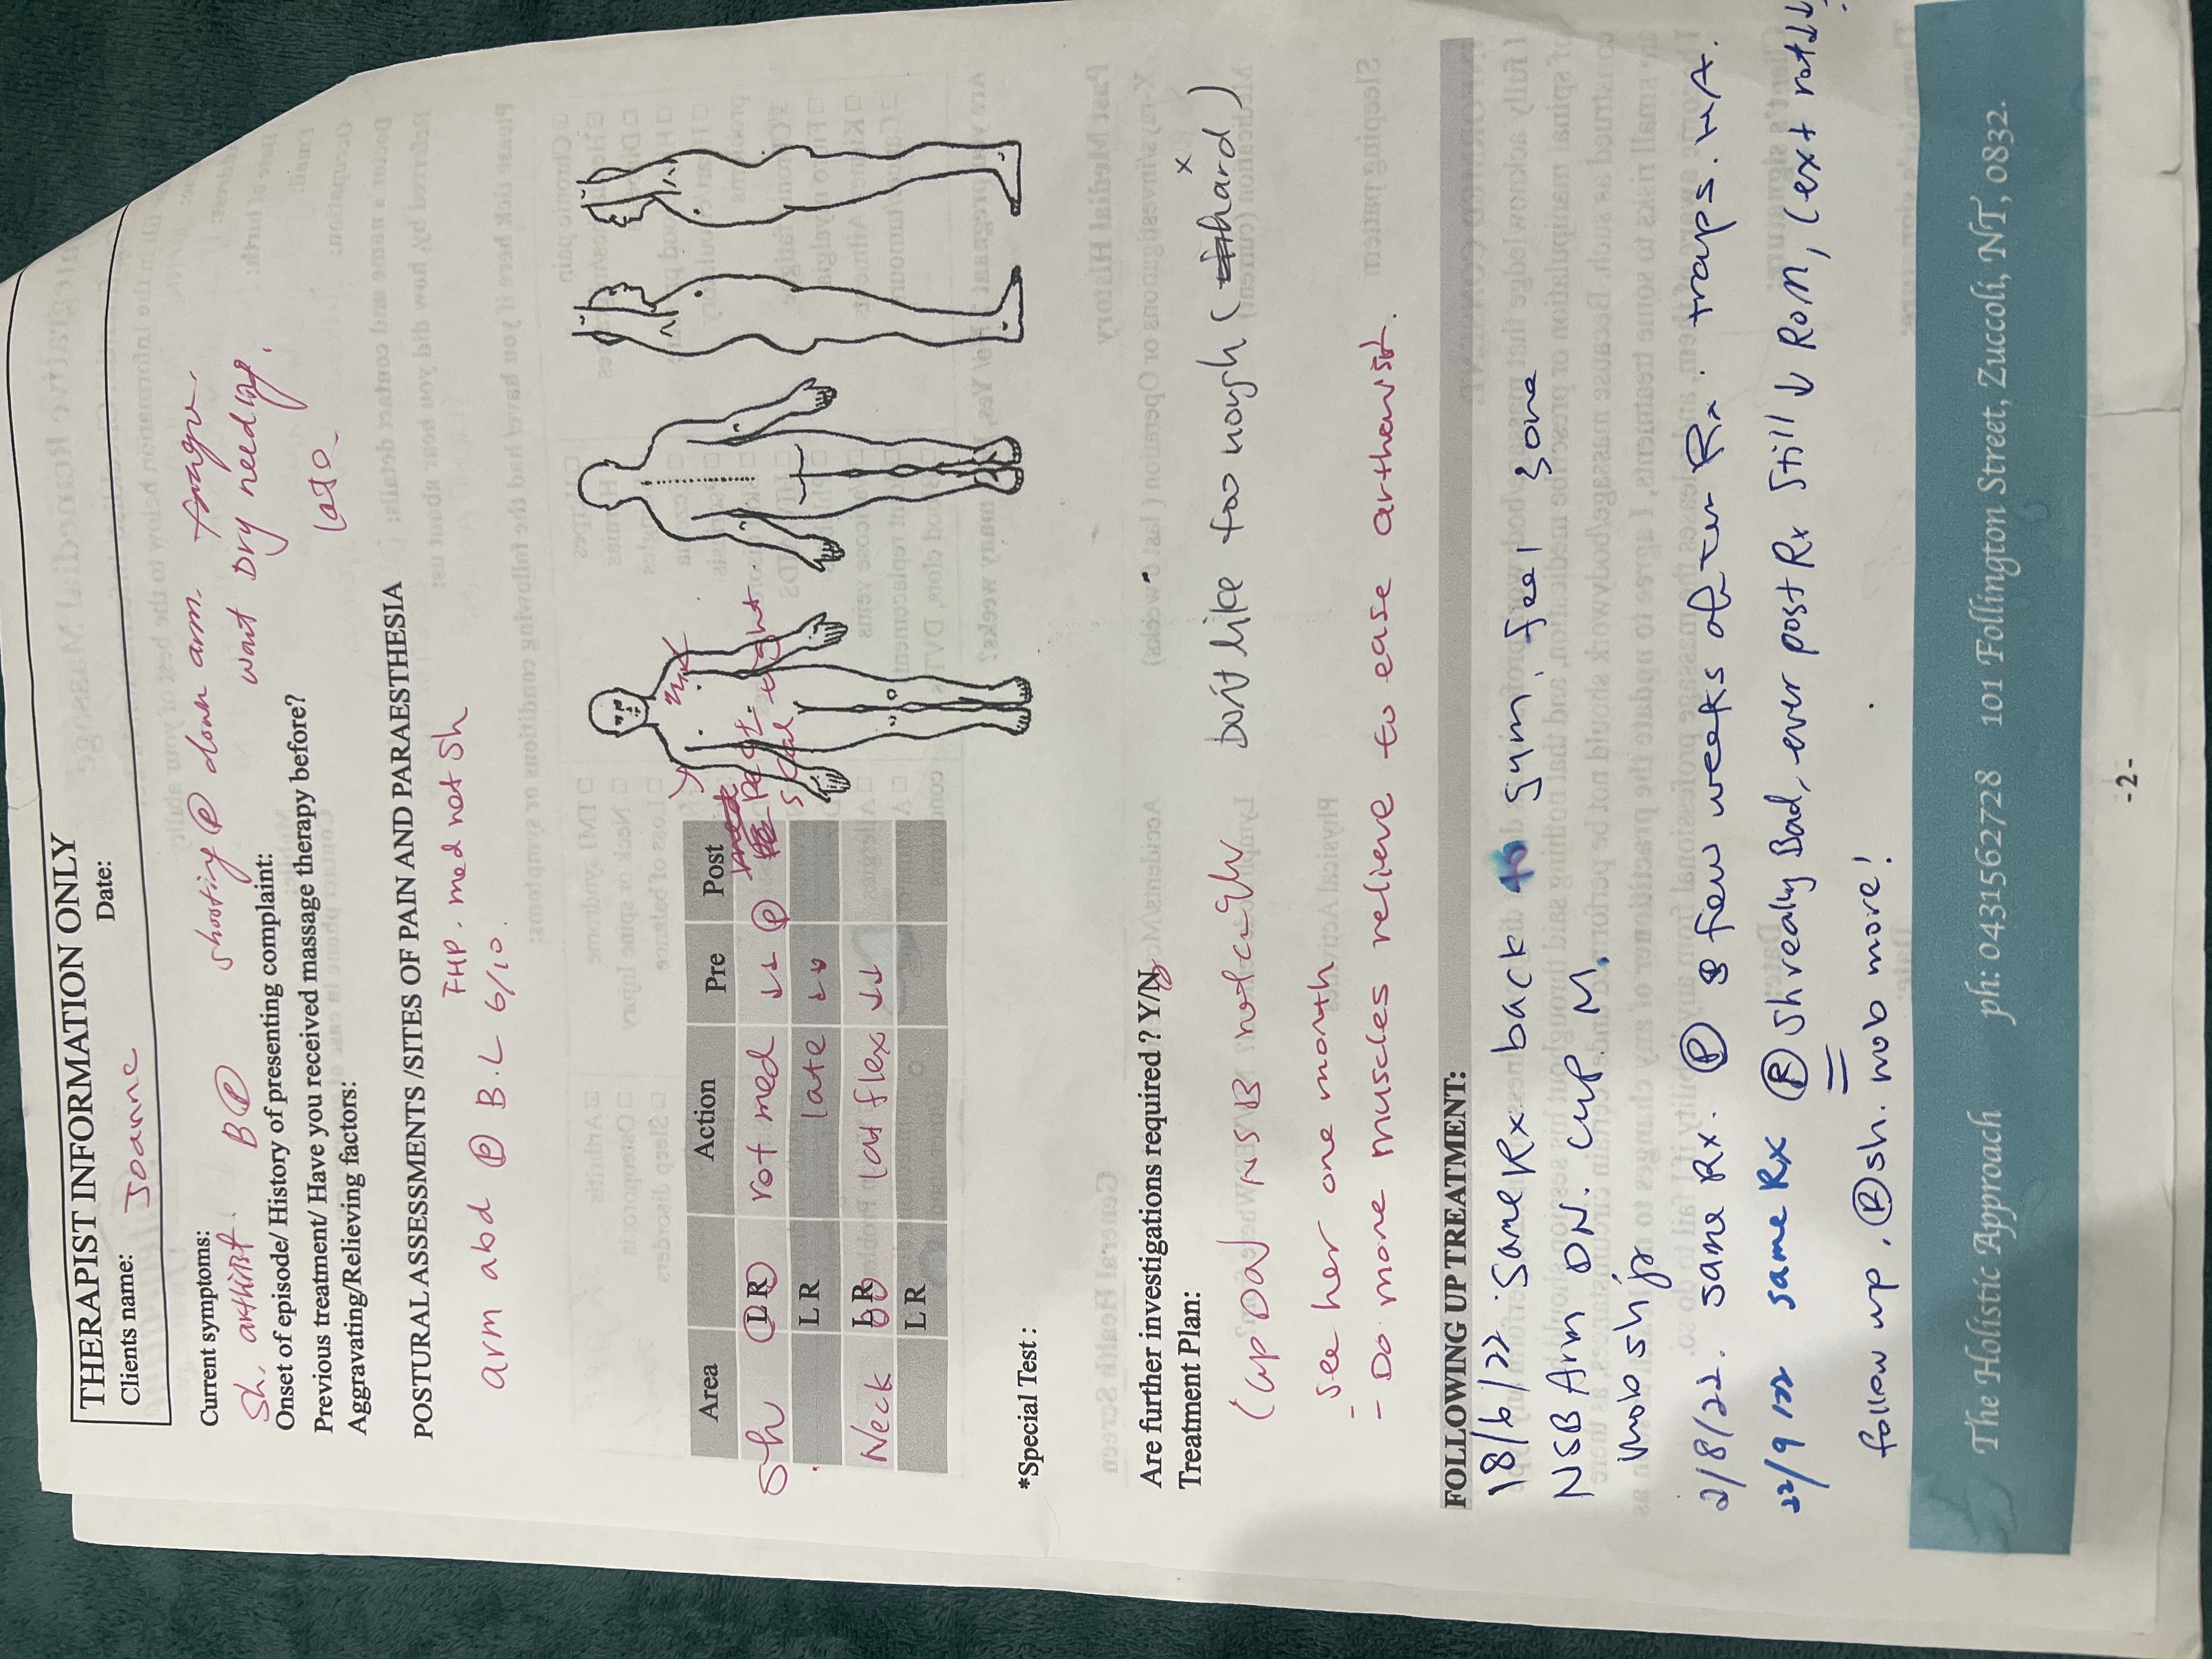 THERAPIST INFORMATION ONLY
Clients name: Joanne Date:
Current symptoms: shooting Ⓟ down arm.
Sh. BⓅ want Dry needling.
Onset of episode/ History of presenting complaint:
Previous treatment/ Have you received massage therapy before?
Aggravating/Relieving factors:
POSTURAL ASSESSMENTS /SITES OF PAIN AND PARAESTHESIA
FHP. med rot Sh
arm abd Ⓟ B.L 6/10.
Area Action Pre Post
Sh L R rot med ↓↓ Ⓟ
L R late ↓↓
Neck L R lat flex ↓↓
L R
pect.
tight.
*Special Test :
Are further investigations required ? Y/N
Treatment Plan: Don't like too rough (hard)
- see her one month
- Do more muscles relieve to ease
FOLLOWING UP TREATMENT:
18/6/22 Same Rx back gym. feel sore
NSB Arm DN. cup. M.
mob sh jt
2/8/22. same Rx. Ⓟ few weeks after Rx. traps.
22/9 same Rx Ⓡ sh really Bad, ever post Rx still ↓ Rom, (ext rot↓↓
follow up. Ⓡ sh. mob more!
The Holistic Approach ph: 0431562728 101 Follington Street, Zuccoli, NT, 0832.
-2-